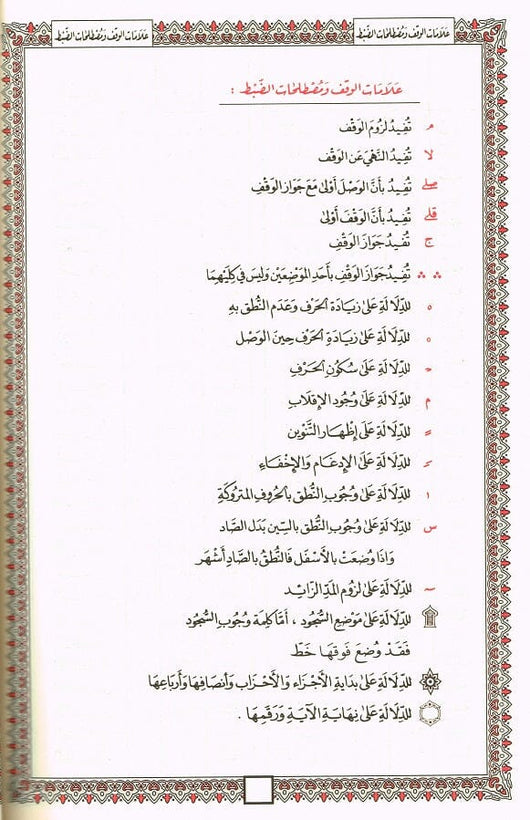 عَلامَات الوَقف وَمُصْطلحَات الضَّبْط
عَلامَات الوَقف وَمُصْطلحَات الضَّبْط
عَلَامَات الوَقف وَمُصْطلحَات الضَّبْط :
مـ تُفِيدُ لزُومَ الوَقْف
لا تُفِيدُ النَّهْيَ عَن الوَقْف
صلے تُفِيدُ بأنَّ الوَصْلَ أَوْلىٰ مَعَ جَوَاز الوَقْفِ
قلے تُفِيدُ بأنَّ الوَقْفَ أَوْلىٰ
ج تُفِيدُ جَوَازَ الوَقْفِ
∴ ∴ تُفِيدُ جَوَازَ الوَقْفِ بأَحَدِ المَوْضِعَيْن وَليسَ فِي كِلَيْهِمَا
٥ للدِّلَالَةِ عَلىٰ زِيَادَة الحَرْف وَعَدَم النُّطق بهِ
٥ للدِّلَالَةِ عَلىٰ زِيَادَةِ الحَرْف حِينَ الوَصْل
ح للدِّلَالَةِ عَلىٰ سُكُونِ الحَرْفِ
م للدِّلَالَةِ عَلىٰ وُجُود الإقلَاب
للدِّلَالَةِ عَلىٰ إظهَار التَّنْوين
للدِّلَالَةِ عَلىٰ الإدغَام وَالإخْفَاءِ
ا للدِّلَالَةِ عَلىٰ وُجُوب النُّطق بالحُروف المَتروكَةِ
س للدِّلَالَةِ عَلىٰ وُجُوب النُّطق بالسِّين بَدَل الصَّاد
وَإذَا وُضعَتْ بالأَسْفَل فَالنُّطقُ بالصَّادِ أَشْهَر
~ للدِّلَالَةِ عَلىٰ لزُوم المَدّ الزَائِد
۩ للدِّلَالَةِ عَلىٰ مَوْضِع السُّجُود ، أمَّا كلِمَة وُجُوب السُّجُود
فَقَدْ وُضِعَ فَوقهَا خَطّ
۞ للدِّلَالَةِ عَلىٰ بدَايَةِ الأَجْزَاء وَالأَحْزَاب وَأنصَافِهَا وَأَربَاعِهَا
للدِّلَالَةِ عَلىٰ نِهَايَةِ الآيَةِ وَرَقمِهَا .